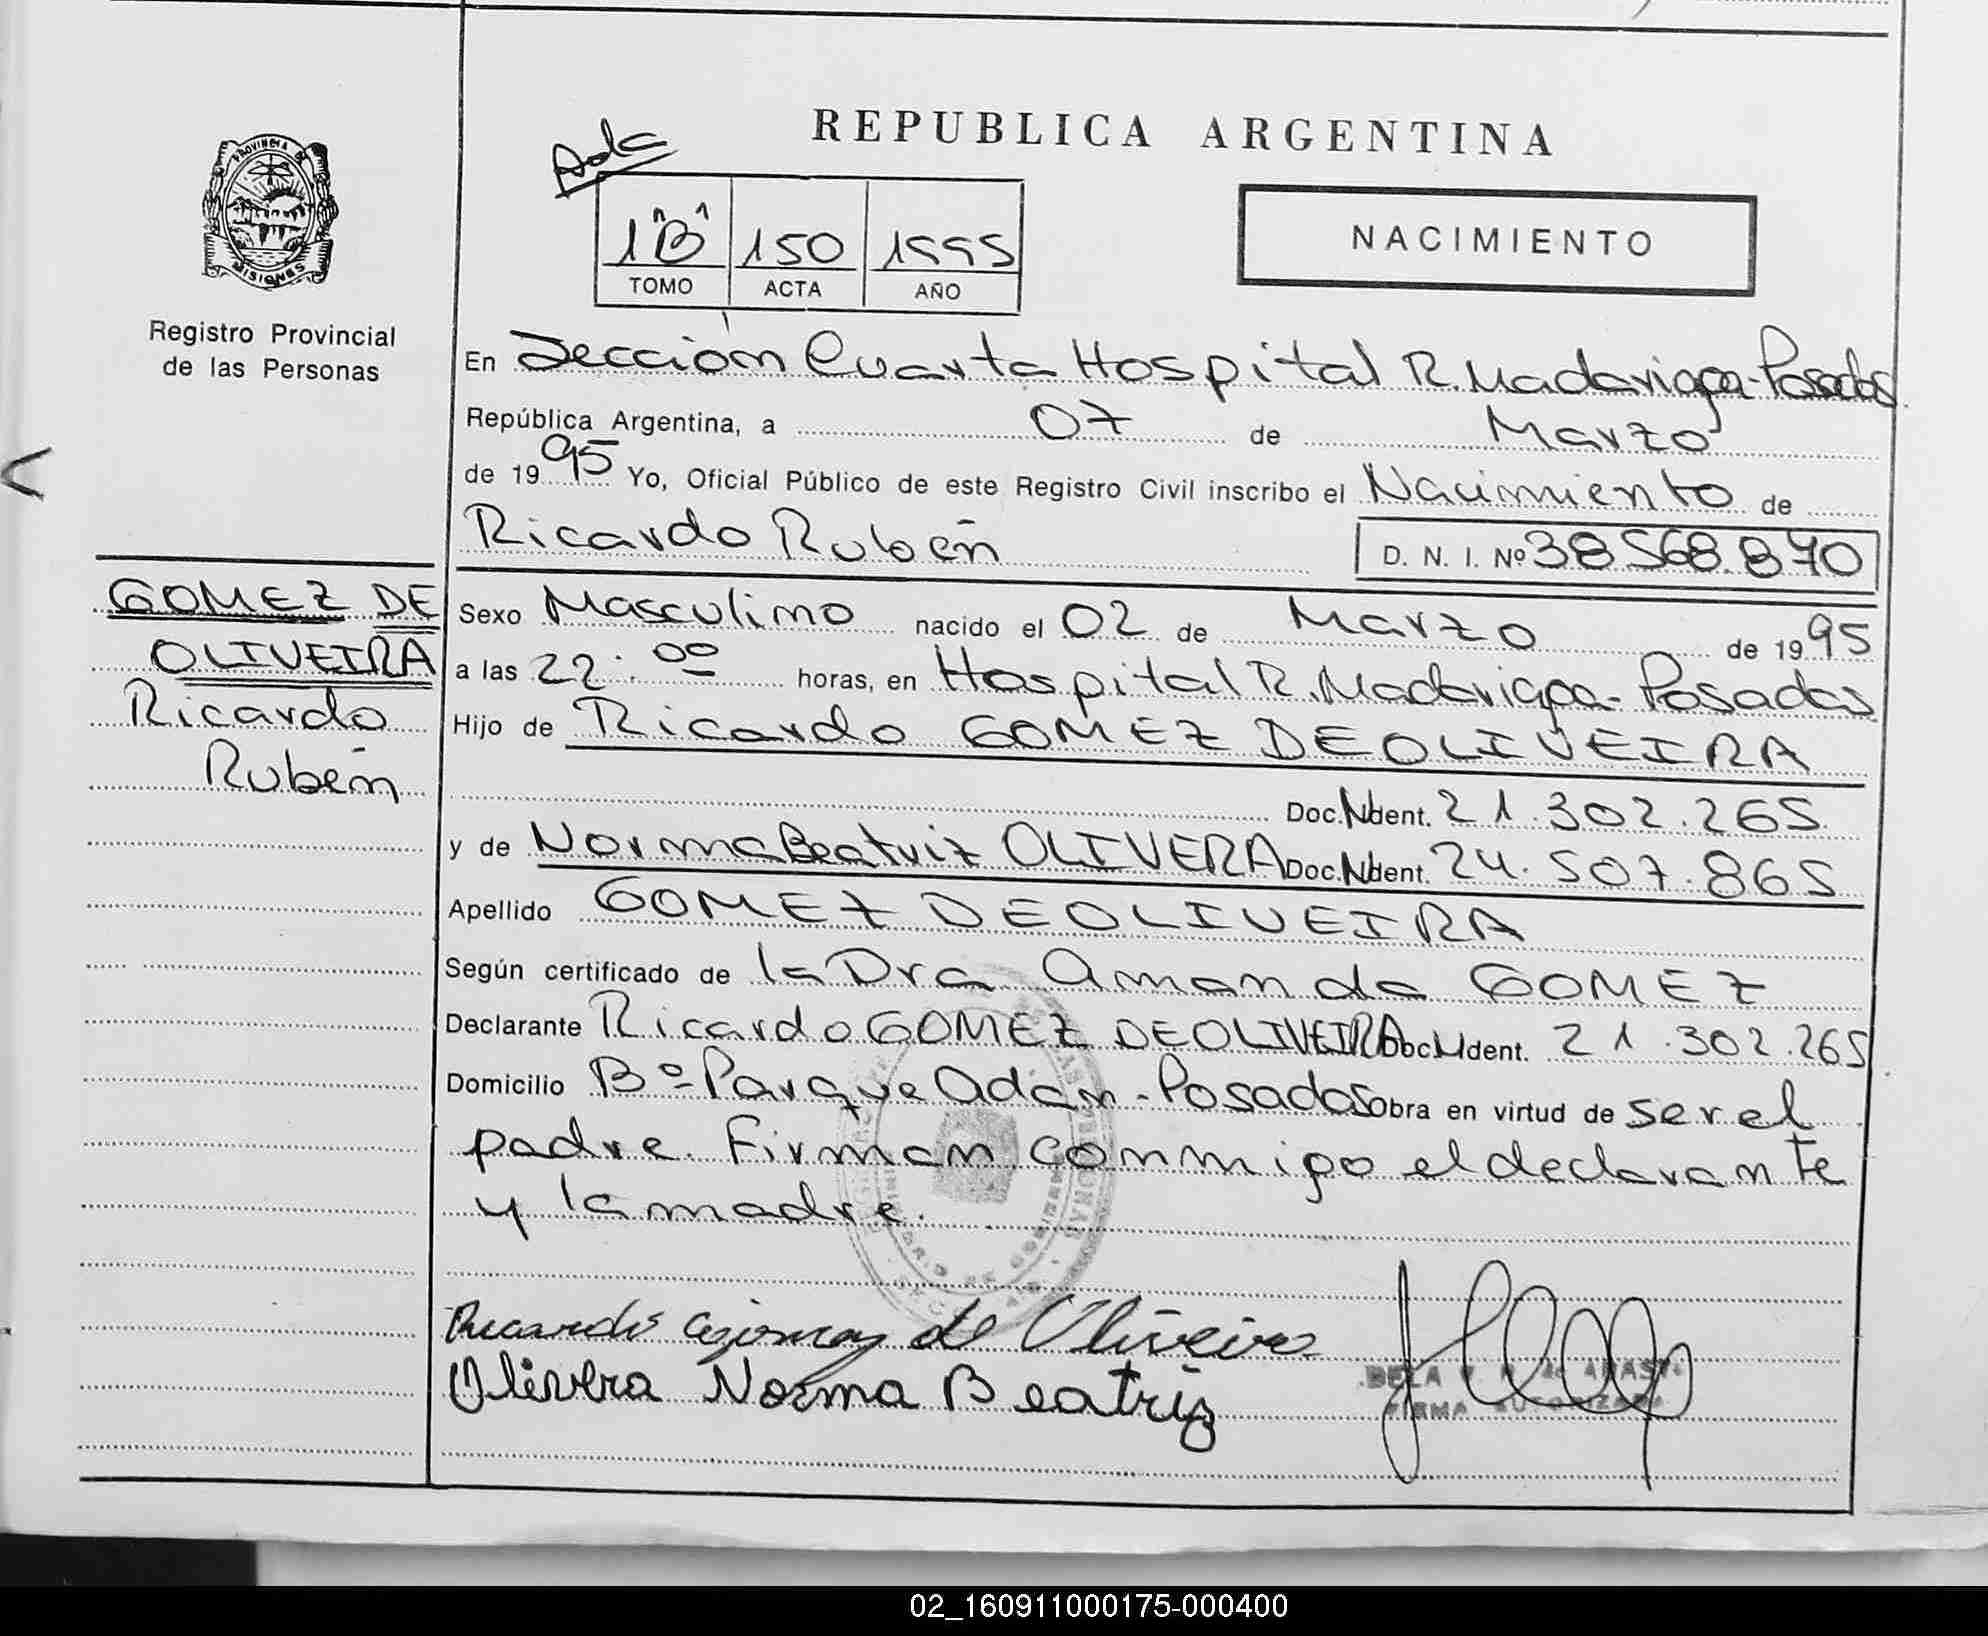 REPUBLICA ARGENTINA
PROVINCIA DE
MISIONES
Registro Provincial
de las Personas
1 "B" 150 1995
TOMO ACTA AÑO
NACIMIENTO
En Sección Cuarta Hospital R. Madariaga - Posadas
República Argentina, a 07 de Marzo
de 1995 Yo, Oficial Público de este Registro Civil inscribo el Nacimiento de
Ricardo Rubén D. N. I. Nº 38568.870
GOMEZ DE
OLIVEIRA
Ricardo
Rubén
Sexo Masculino nacido el 02 de Marzo de 1995
a las 22:00 horas, en Hospital R. Madariaga - Posadas
Hijo de Ricardo GOMEZ DE OLIVEIRA
Doc. Ident. 21.302.265
y de Norma Beatriz OLIVERA Doc. Ident. 24.507.865
Apellido GOMEZ DE OLIVEIRA
Según certificado de la Dra Amanda GOMEZ
Declarante Ricardo GOMEZ DE OLIVEIRA Doc. Ident. 21.302.265
Domicilio Bº Parque Adam - Posadas obra en virtud de ser el
padre. Firman conmigo el declarante
y la madre.
Ricardo Gomez de Oliveira
Olivera Norma Beatriz
FIRMA AUTORIZADA
02_160911000175-000400